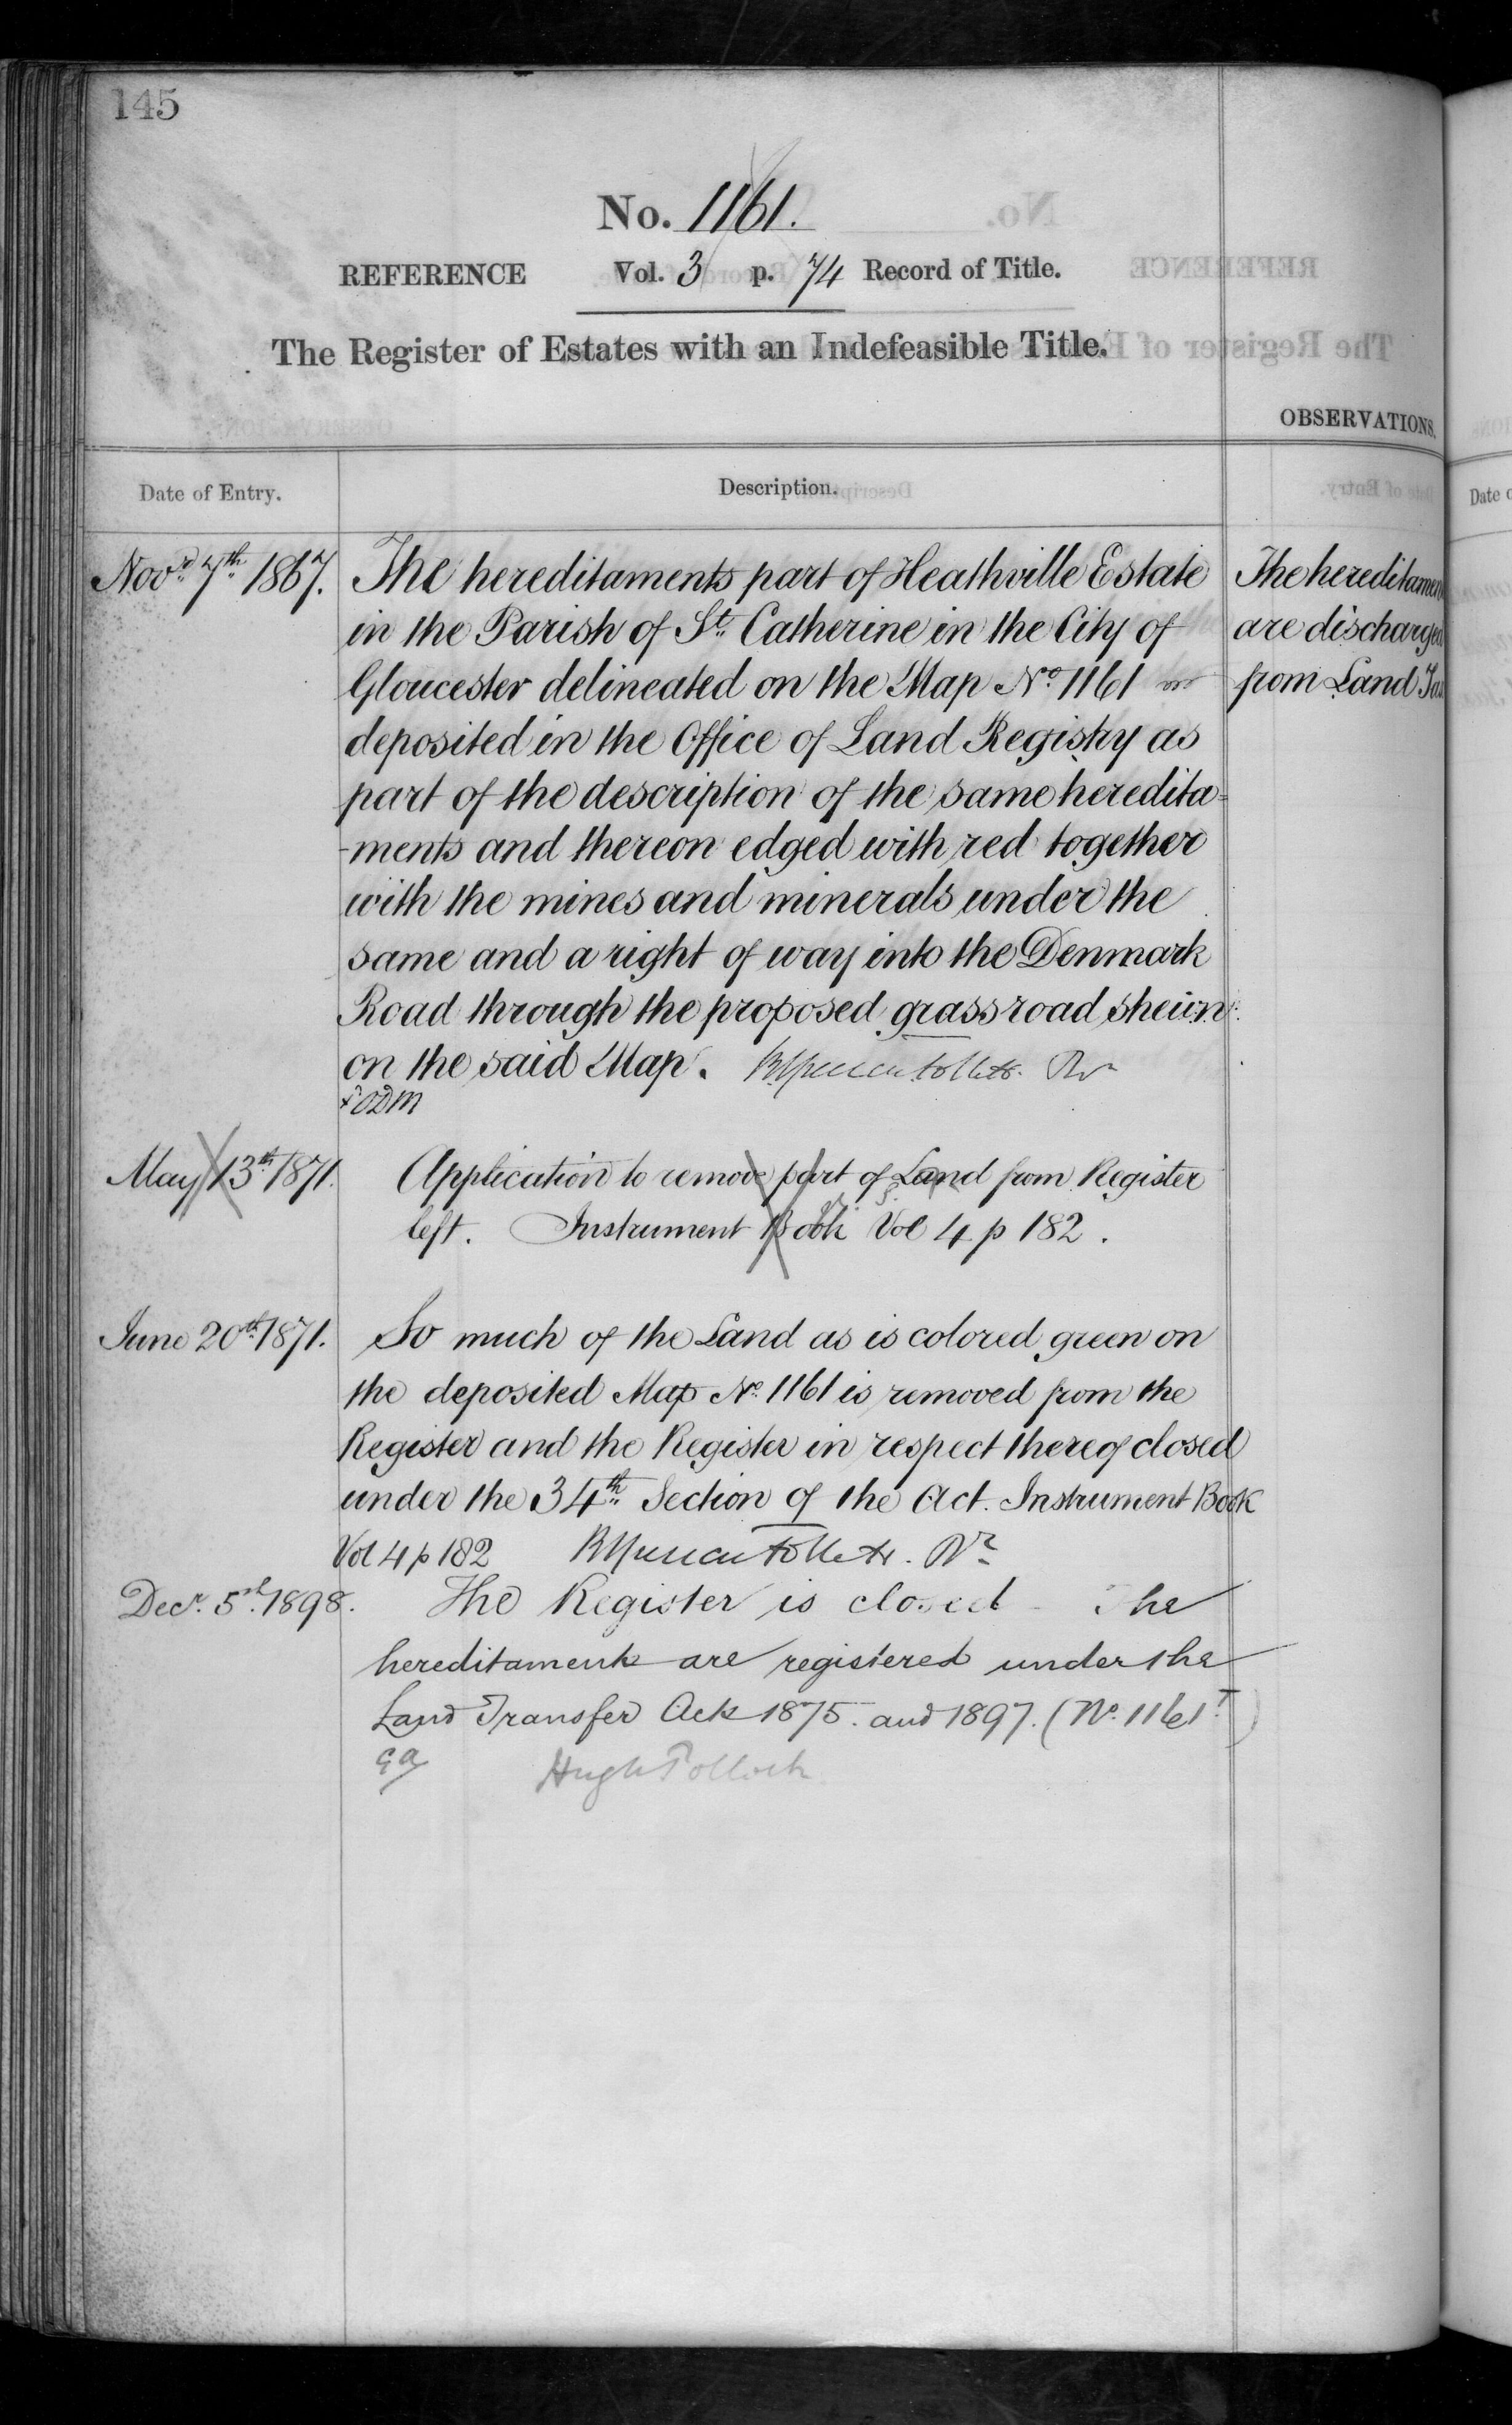 145
No. 1161.
REFERENCE Vol. 3 p. 74 Record of Title.
The Register of Estates with an Indefeasible Title.
OBSERVATIONS.
Date of Entry.
Description.
Novr. 7th 1867.
The hereditaments part of Heathville Estate
in the Parish of St. Catherine in the City of
Gloucester delineated on the Map No. 1161
deposited in the Office of Land Registry as
part of the description of the same heredita-
-ments and thereon edged with red together
with the mines and minerals under the
same and a right of way into the Denmark
Road through the proposed grass road shewn
on the said Map.
The hereditamen
are discharged
from Land Tax
May 13th 1871.
Application to remove part of Land from Register
left. Instrument Book Vol 4 p 182.
June 20th 1871.
So much of the Land as is colored green on
the deposited Map No. 1161 is removed from the
Register and the Register in respect thereof closed
under the 34th Section of the Act. Instrument Book
Vol 4 p 182
Decr. 5th 1898.
The Register is closed - The
hereditaments are registered under the
Land Transfer Acts 1875. and 1897. (No. 1161
Hugh Pollock
Date o